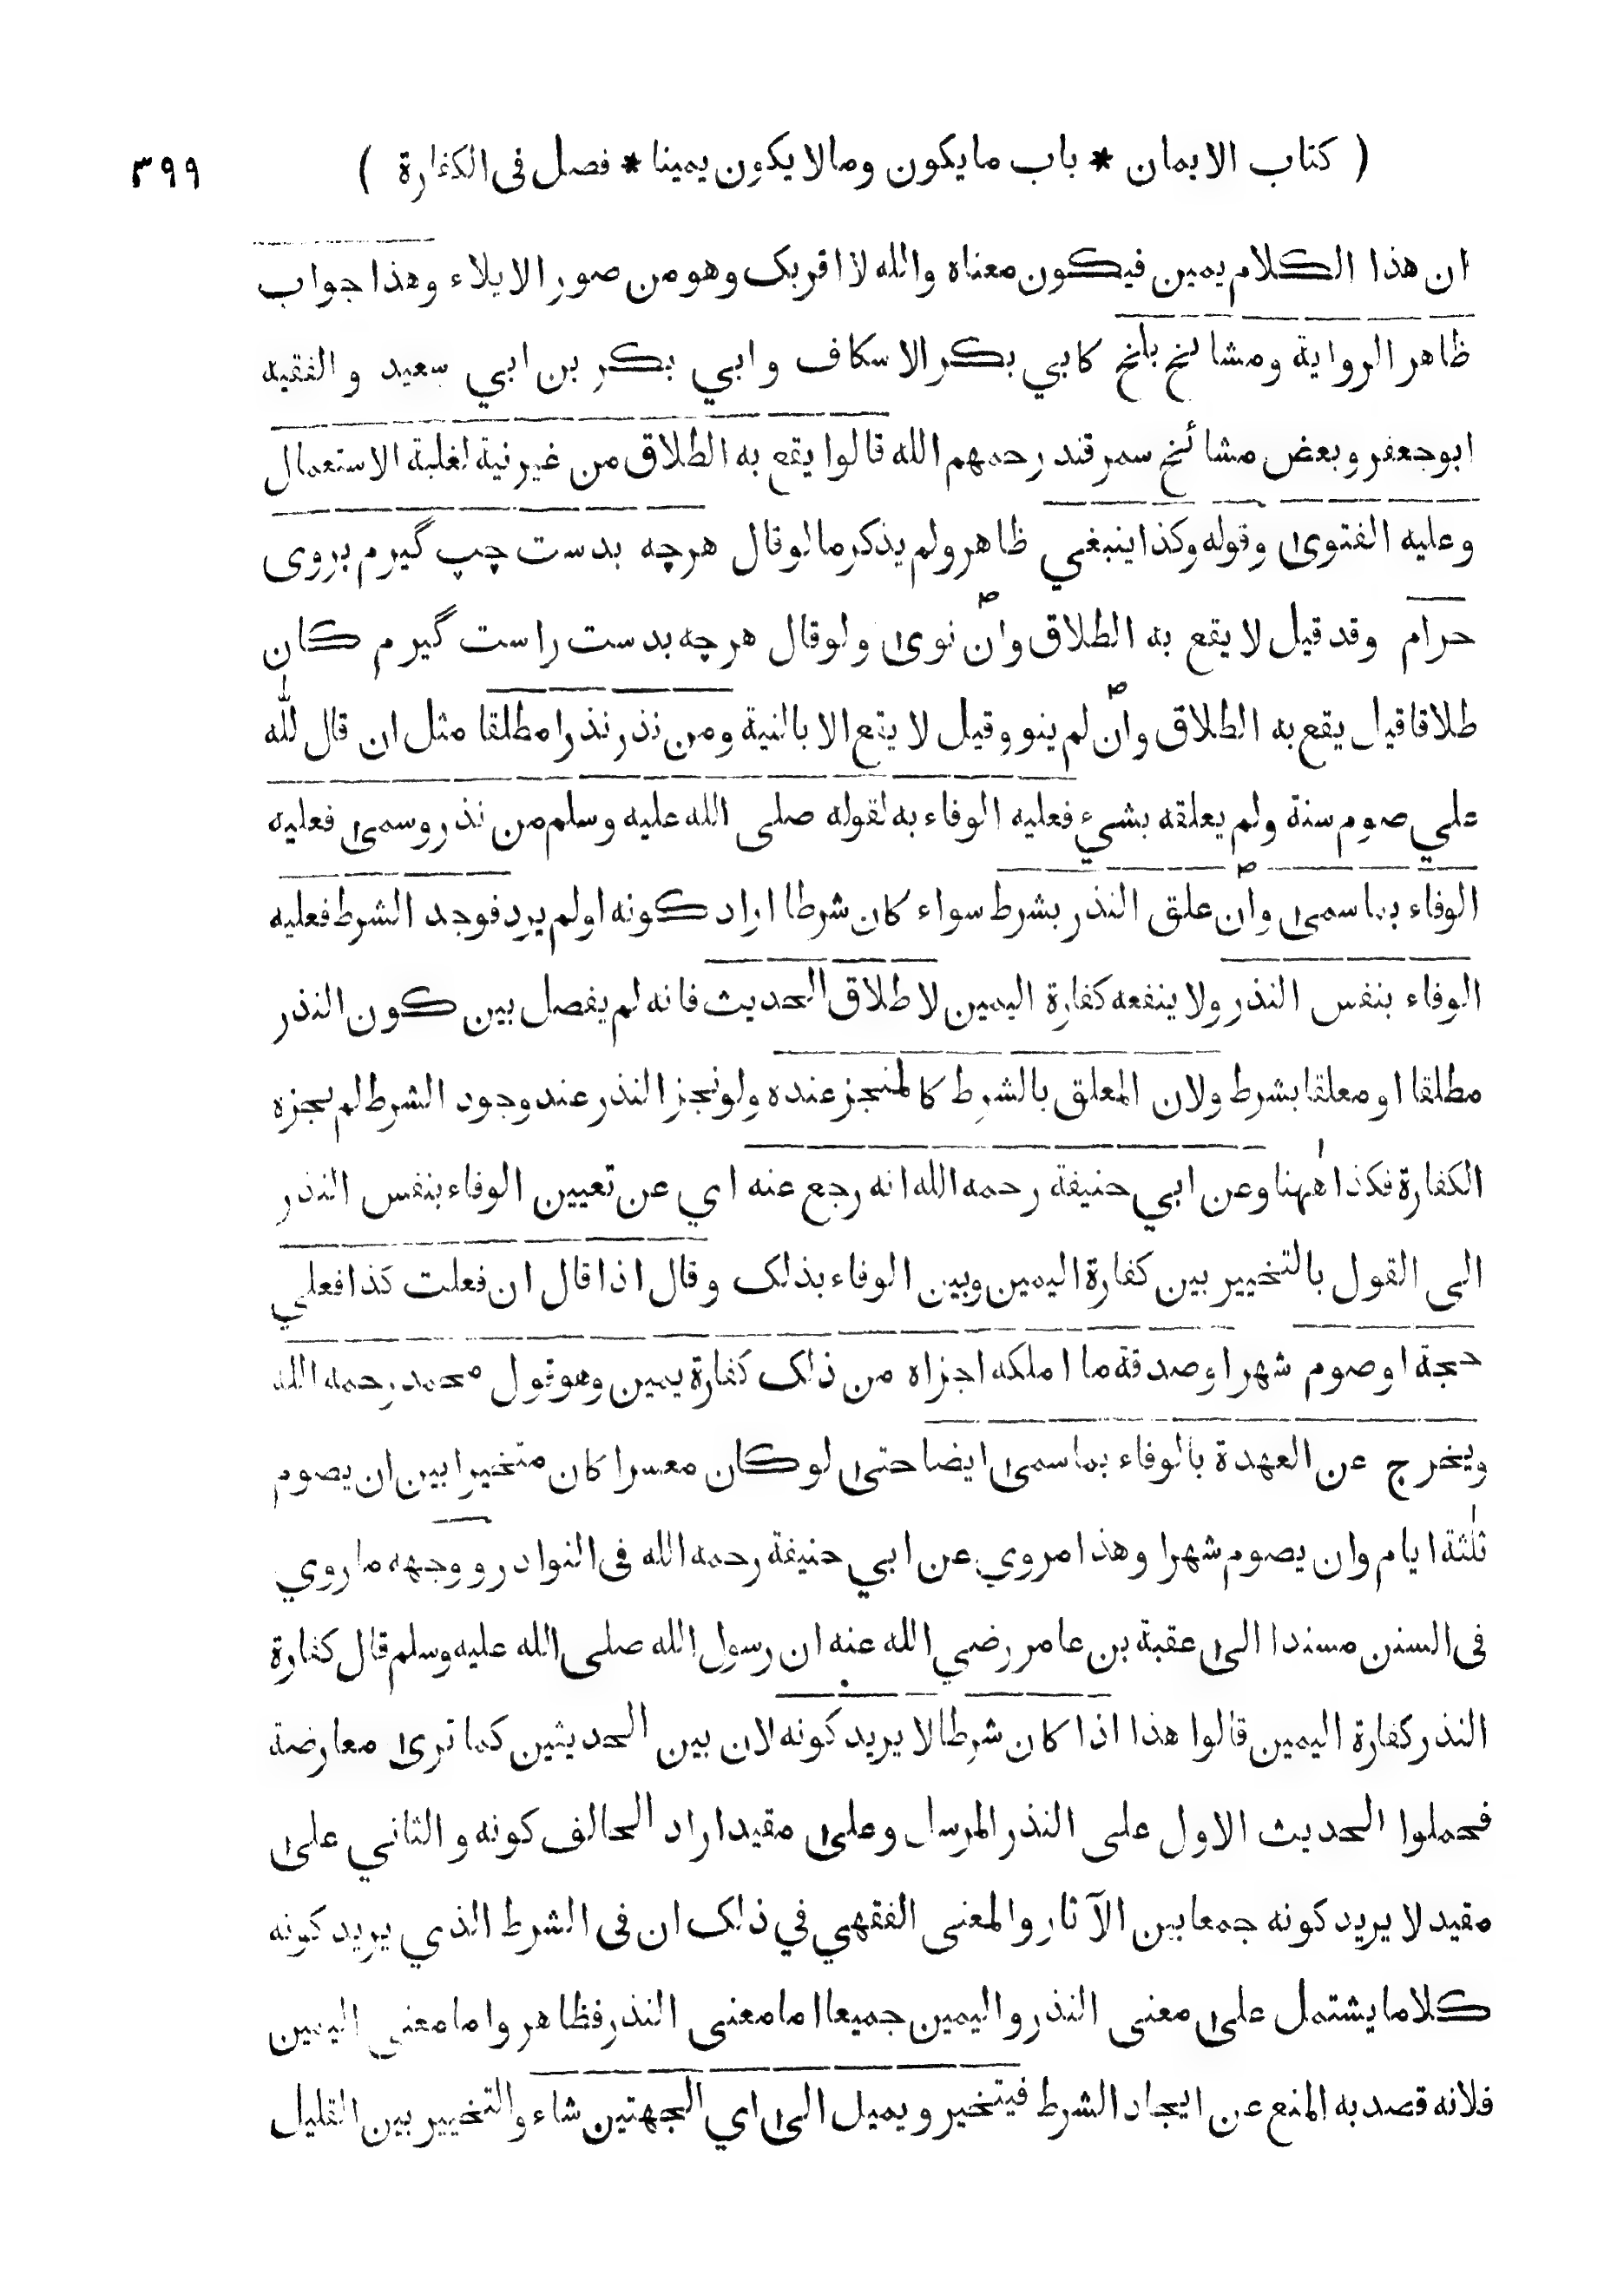 ( كتاب الايمان * باب مايكون ومالايكون يمينا * فصل فى الكفارة ) ٣٩٩
ان هذا الكلام يمين فيكون معناه والله لا اقربك وهو من صور الايلاء وهذا جواب
ظاهر الرواية ومشائخ بلخ كابي بكر الاسكاف وابي بكر بن ابي سعيد والفقيه
ابوجعفر وبعض مشائخ سمرقند رحمهم الله قالوا يقع به الطلاق من غير نية لغلبة الاستعمال
وعليه الفتوى وقوله وكذا ينبغي ظاهر ولم يذكر مالوقال هرچه بدست چپ گيرم بروى
حرام وقد قيل لا يقع به الطلاق وان نوى ولوقال هرچه بدست راست گيرم كان
طلاقا قيل يقع به الطلاق وان لم ينو وقيل لا يقع الا بالنية ومن نذر نذرا مطلقا مثل ان قال لله
علي صوم سنة ولم يعلقه بشيء فعليه الوفاء به لقوله صلى الله عليه وسلم من نذر وسمى فعليه
الوفاء بما سمى وان علق النذر بشرط سواء كان شرطا اراد كونه اولم يرد فوجد الشرط فعليه
الوفاء بنفس النذر ولا ينفعه كفارة اليمين لاطلاق الحديث فانه لم يفصل بين كون النذر
مطلقا او معلقا بشرط ولان المعلق بالشرط كالمنجز عنده ولونجز النذر عند وجود الشرط لم يجزه
الكفارة فكذا ههنا وعن ابي حنيفة رحمه الله انه رجع عنه اي عن تعيين الوفاء بنفس النذر
الى القول بالتخيير بين كفارة اليمين وبين الوفاء بذلك وقال اذا قال ان فعلت كذا فعلي
حجة او صوم شهر او صدقة ما املكه اجزاه من ذلك كفارة يمين وهو قول محمد رحمه الله
ويخرج عن العهدة بالوفاء بما سمى ايضا حتى لوكان معسرا كان متخيرا بين ان يصوم
ثلثة ايام وان يصوم شهرا وهذا مروي عن ابي حنيفة رحمه الله فى النوادر ووجهه ما روي
فى السنن مسندا الى عقبة بن عامر رضي الله عنه ان رسول الله صلى الله عليه وسلم قال كفارة
النذر كفارة اليمين قالوا هذا اذا كان شرطا لا يريد كونه لان بين الحديثين كما ترى معارضة
فحملوا الحديث الاول على النذر المرسل وعلى مقيد اراد الحالف كونه والثاني على
مقيد لا يريد كونه جمعا بين الآثار والمعنى الفقهي في ذلك ان فى الشرط الذي يريد كونه
كلاما يشتمل على معنى النذر واليمين جميعا اما معنى النذر فظاهر واما معنى اليمين
فلانه قصد به المنع عن ايجاد الشرط فيتخير ويميل الى اي الجهتين شاء والتخيير بين القليل